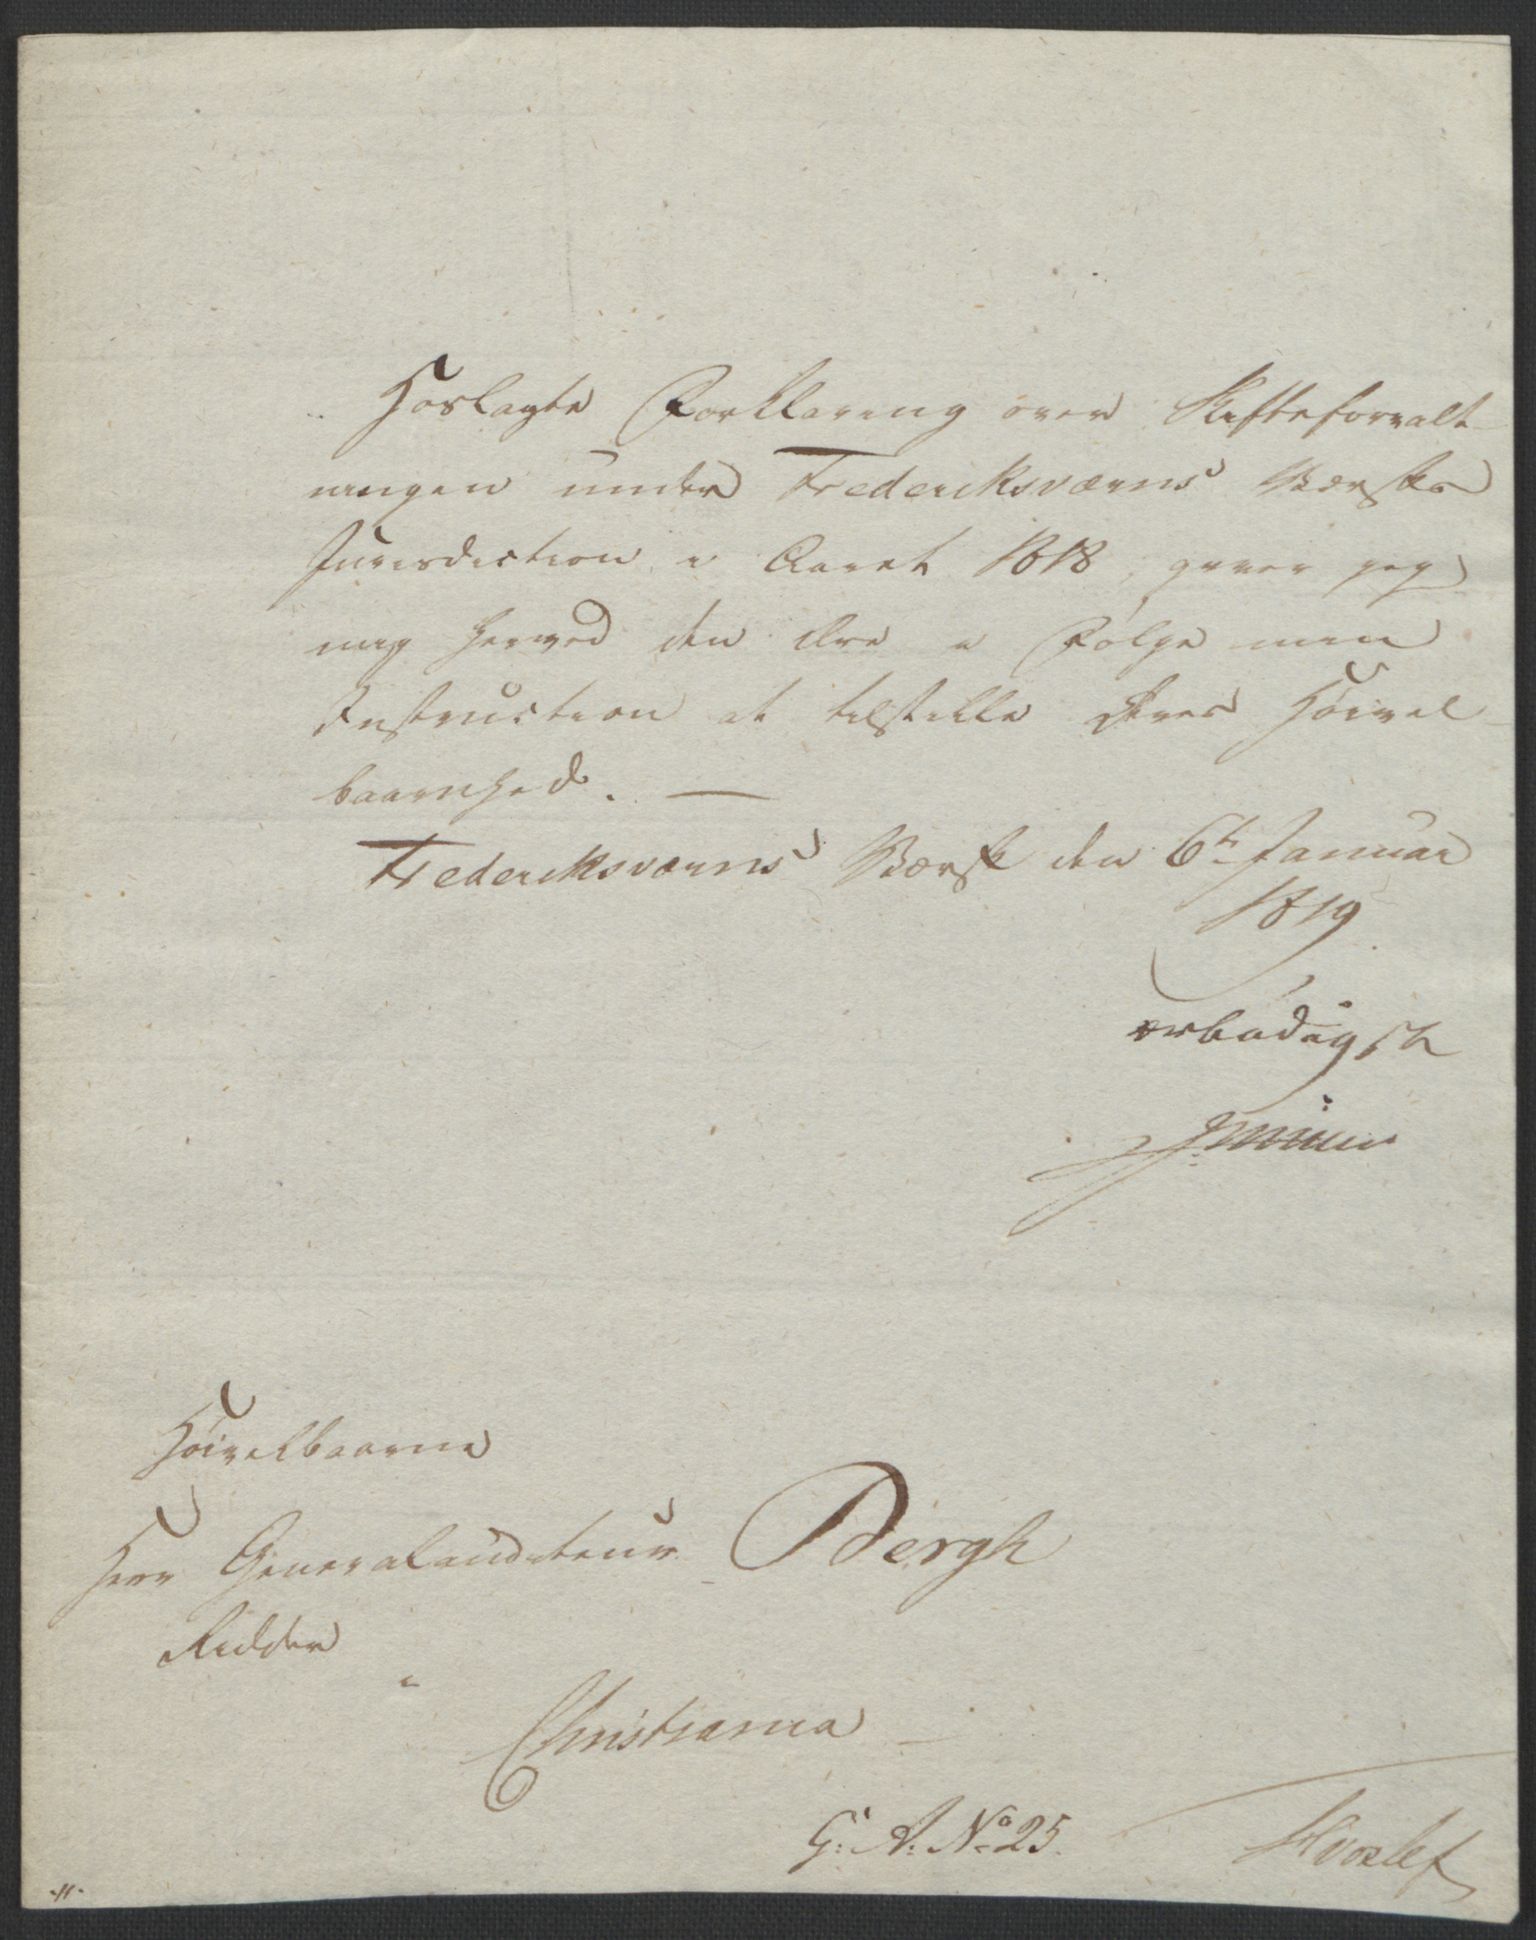 Hoslagte Forklaring over Skifteforvalt-
ningen under Frederiksværns Værfts
Jurisdiction i Aaret 1818, giver jeg
mig herved den Ære i Følge min
Instruction at tilstille Deres Høivel-
baarnhed. —
Frederiksværns Værft den 6te Januar
1819
ærbødigst
Høivelbaarne
Herr Generalauditeur Bergh
Ridder
i
Christiania
G: A: No 25.